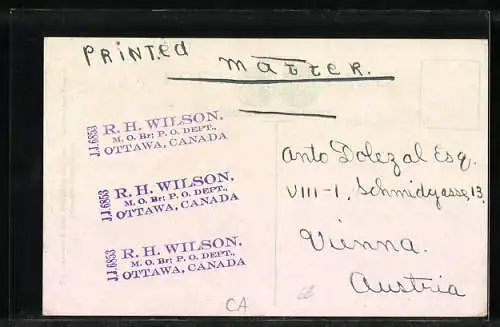 Printed
matter.
JJ.6853
R. H. WILSON.
M. O. Br: P. O. DEPT.,
OTTAWA, CANADA
JJ.6853
R. H. WILSON.
M. O. Br: P. O. DEPT.,
OTTAWA, CANADA
JJ.6853
R. H. WILSON.
M. O. Br: P. O. DEPT.,
OTTAWA, CANADA
Anto Dolezal Esq.
VIII-1, Schmidgasse, 13,
Vienna.
Austria
CA